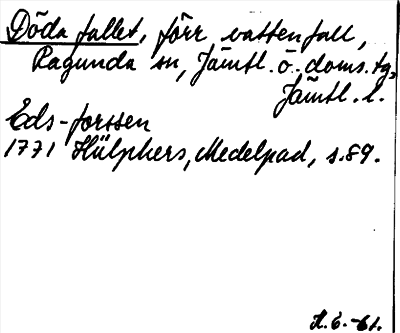 Döda fallet, förr vattenfall,
Ragunda sn, Jämtl. ö. doms. tg,
Jämtl. l.
Eds-forssen
1771 Hülphers, Medelpad, s. 89.
H. E. -61.